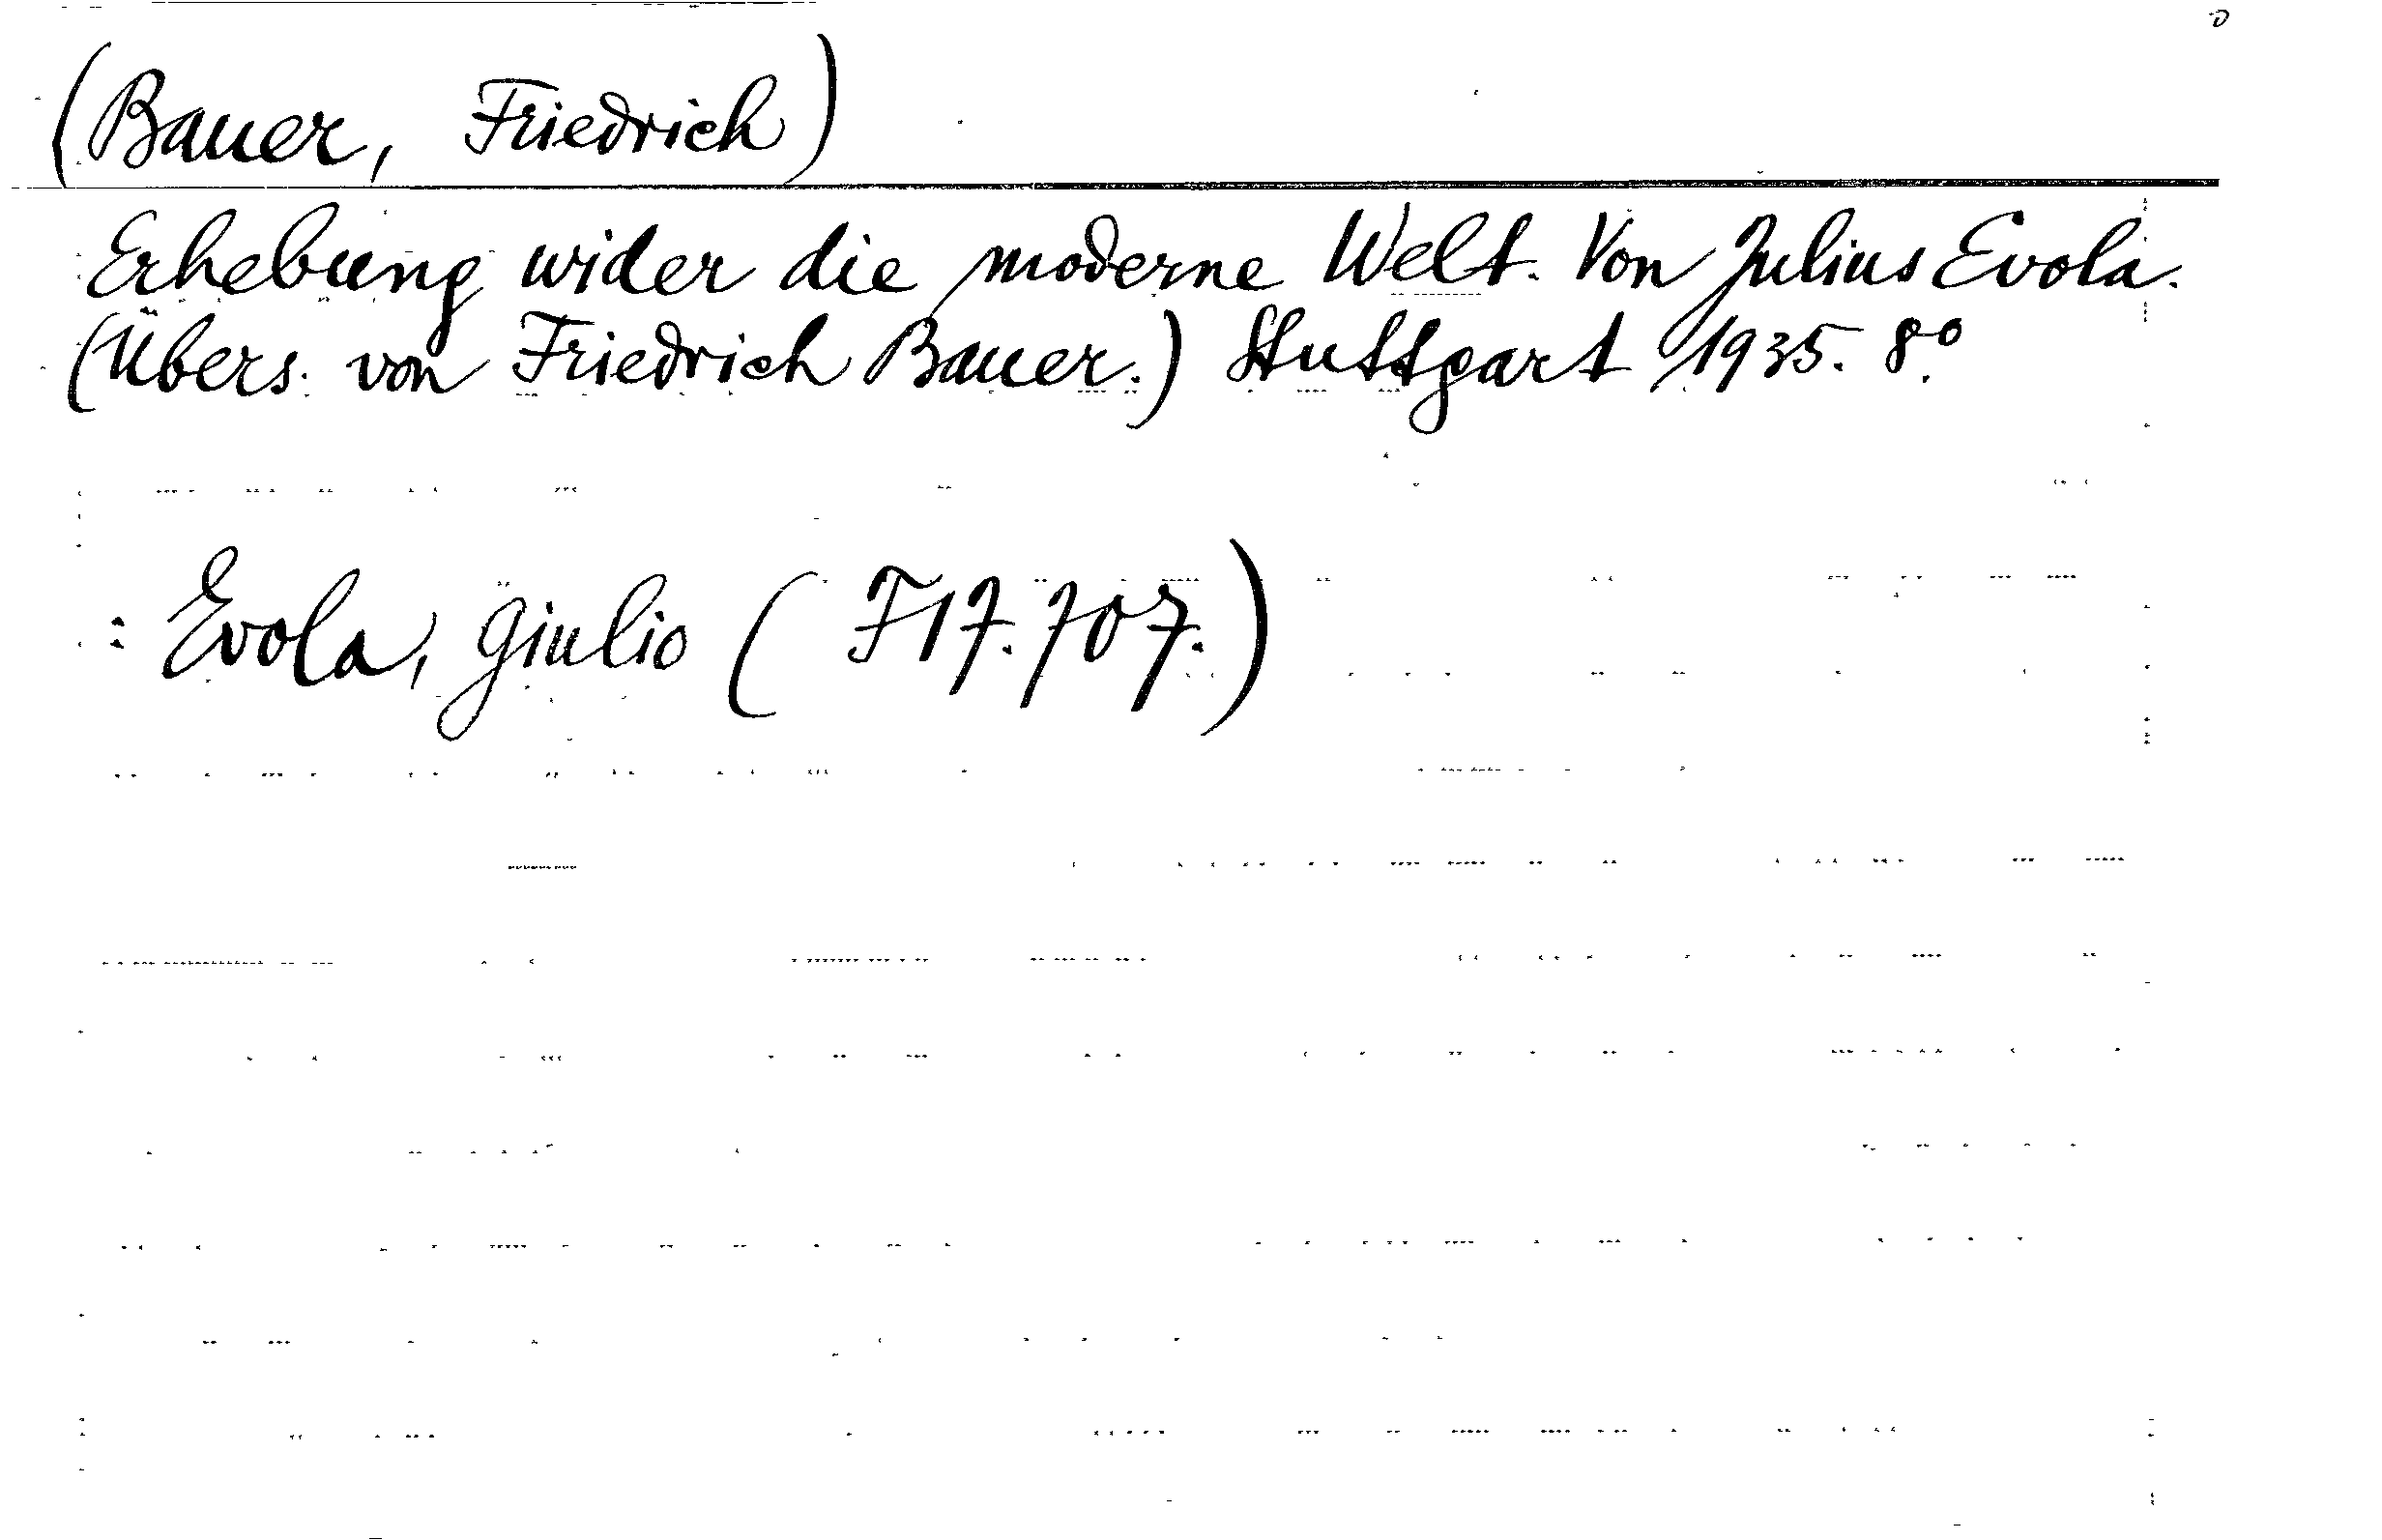 (Bauer, Friedrich)
Erhebung wider die moderne Welt. Von Julius Evola.
(Übers. von Friedrich Bauer.) Stuttgart 1935. 8°.
: Evola, Giulio (F17.707.)